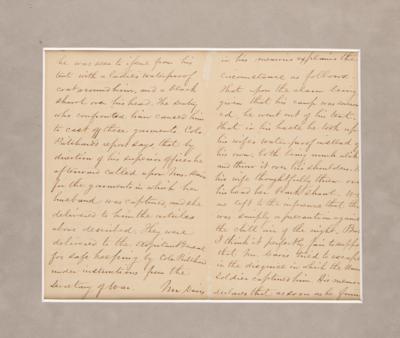 he was seen to issue from his
tent with a ladies waterproof
coat around him, and a black
shawl over his head. The
who confronted him caused him
to cast off these garments Col.
Pritchards report says that by
direction of his superior officer he
afterward called upon Mrs Davis
for the garments in which her
husband was captured, and she
delivered to him the articles
above described. They were
delivered to the Adjutant General
for safe keeping by Col. Pritchard
under instructions from the
Secretary of War. Mr Davis
in his memoirs explains the
circumstance as follows
that upon the alarm being
given that his camp was
he went out of his tent
that in his haste he took up
his wifes waterproof instead of
his own, both being much alike
and threw it over his shoulders &
his wife thoughtfully threw over
his head her black shawl. We
are left to the inference that this
was simply a precaution against
the chill air of the night. But
I think it perfectly fair to suppose
that Mr. Davis tried to escape
in the disguise in which the
soldier captured him. His memoirs
declares that as soon as he found